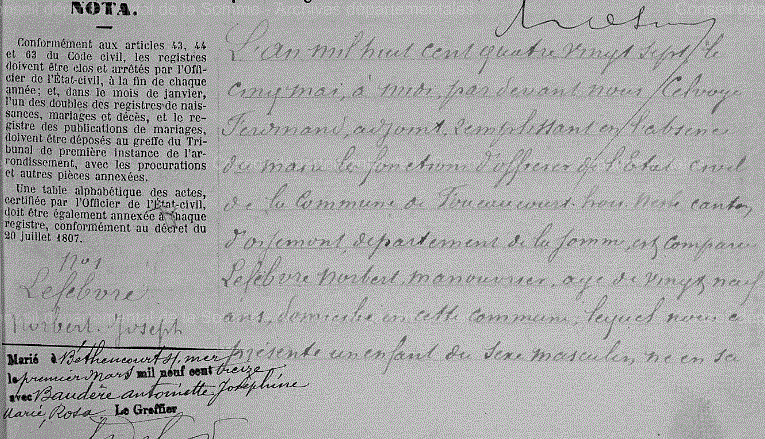 NOTA.
Conformément aux articles 43, 44
et 63 du Code civil, les registres
doivent être clos et arrêtés par l'Offi-
cier de l'État-civil, à la fin de chaque
année; et, dans le mois de janvier,
l'un des doubles des registres de nais-
sances, mariages et décès, et le re-
gistre des publications de mariages,
doivent être déposés au greffe du Tri-
bunal de première instance de l'ar-
rondissement, avec les procurations
et autres pièces annexées.
Une table alphabétique des actes,
certifiée par l'Officier de l'État-civil,
doit être également annexée à chaque
registre, conformément au décret du
20 juillet 1807.
Lefebvre
Norbert Joseph
Marié à Béthencourt s/ mer
le premier Mars mil neuf cent treize
avec Baudère Antoinette Joséphine
Marie, Rosa Le Greffier
L'An mil huit cent quatre vingt sept, le
cinq mai, à midi, pardevant nous
Ferdinand, adjoint, remplissant en l'absence
du maire les fonctions d'officier de l'Etat civil
de la Commune de hors Nesle canton
d'oisemont, département de la Somme, est comparu
Lefebvre Norbert, manouvrier, agé de vingt neuf
ans, domicilié en cette commune, lequel nous a
présenté un enfant du sexe masculin, né en sa